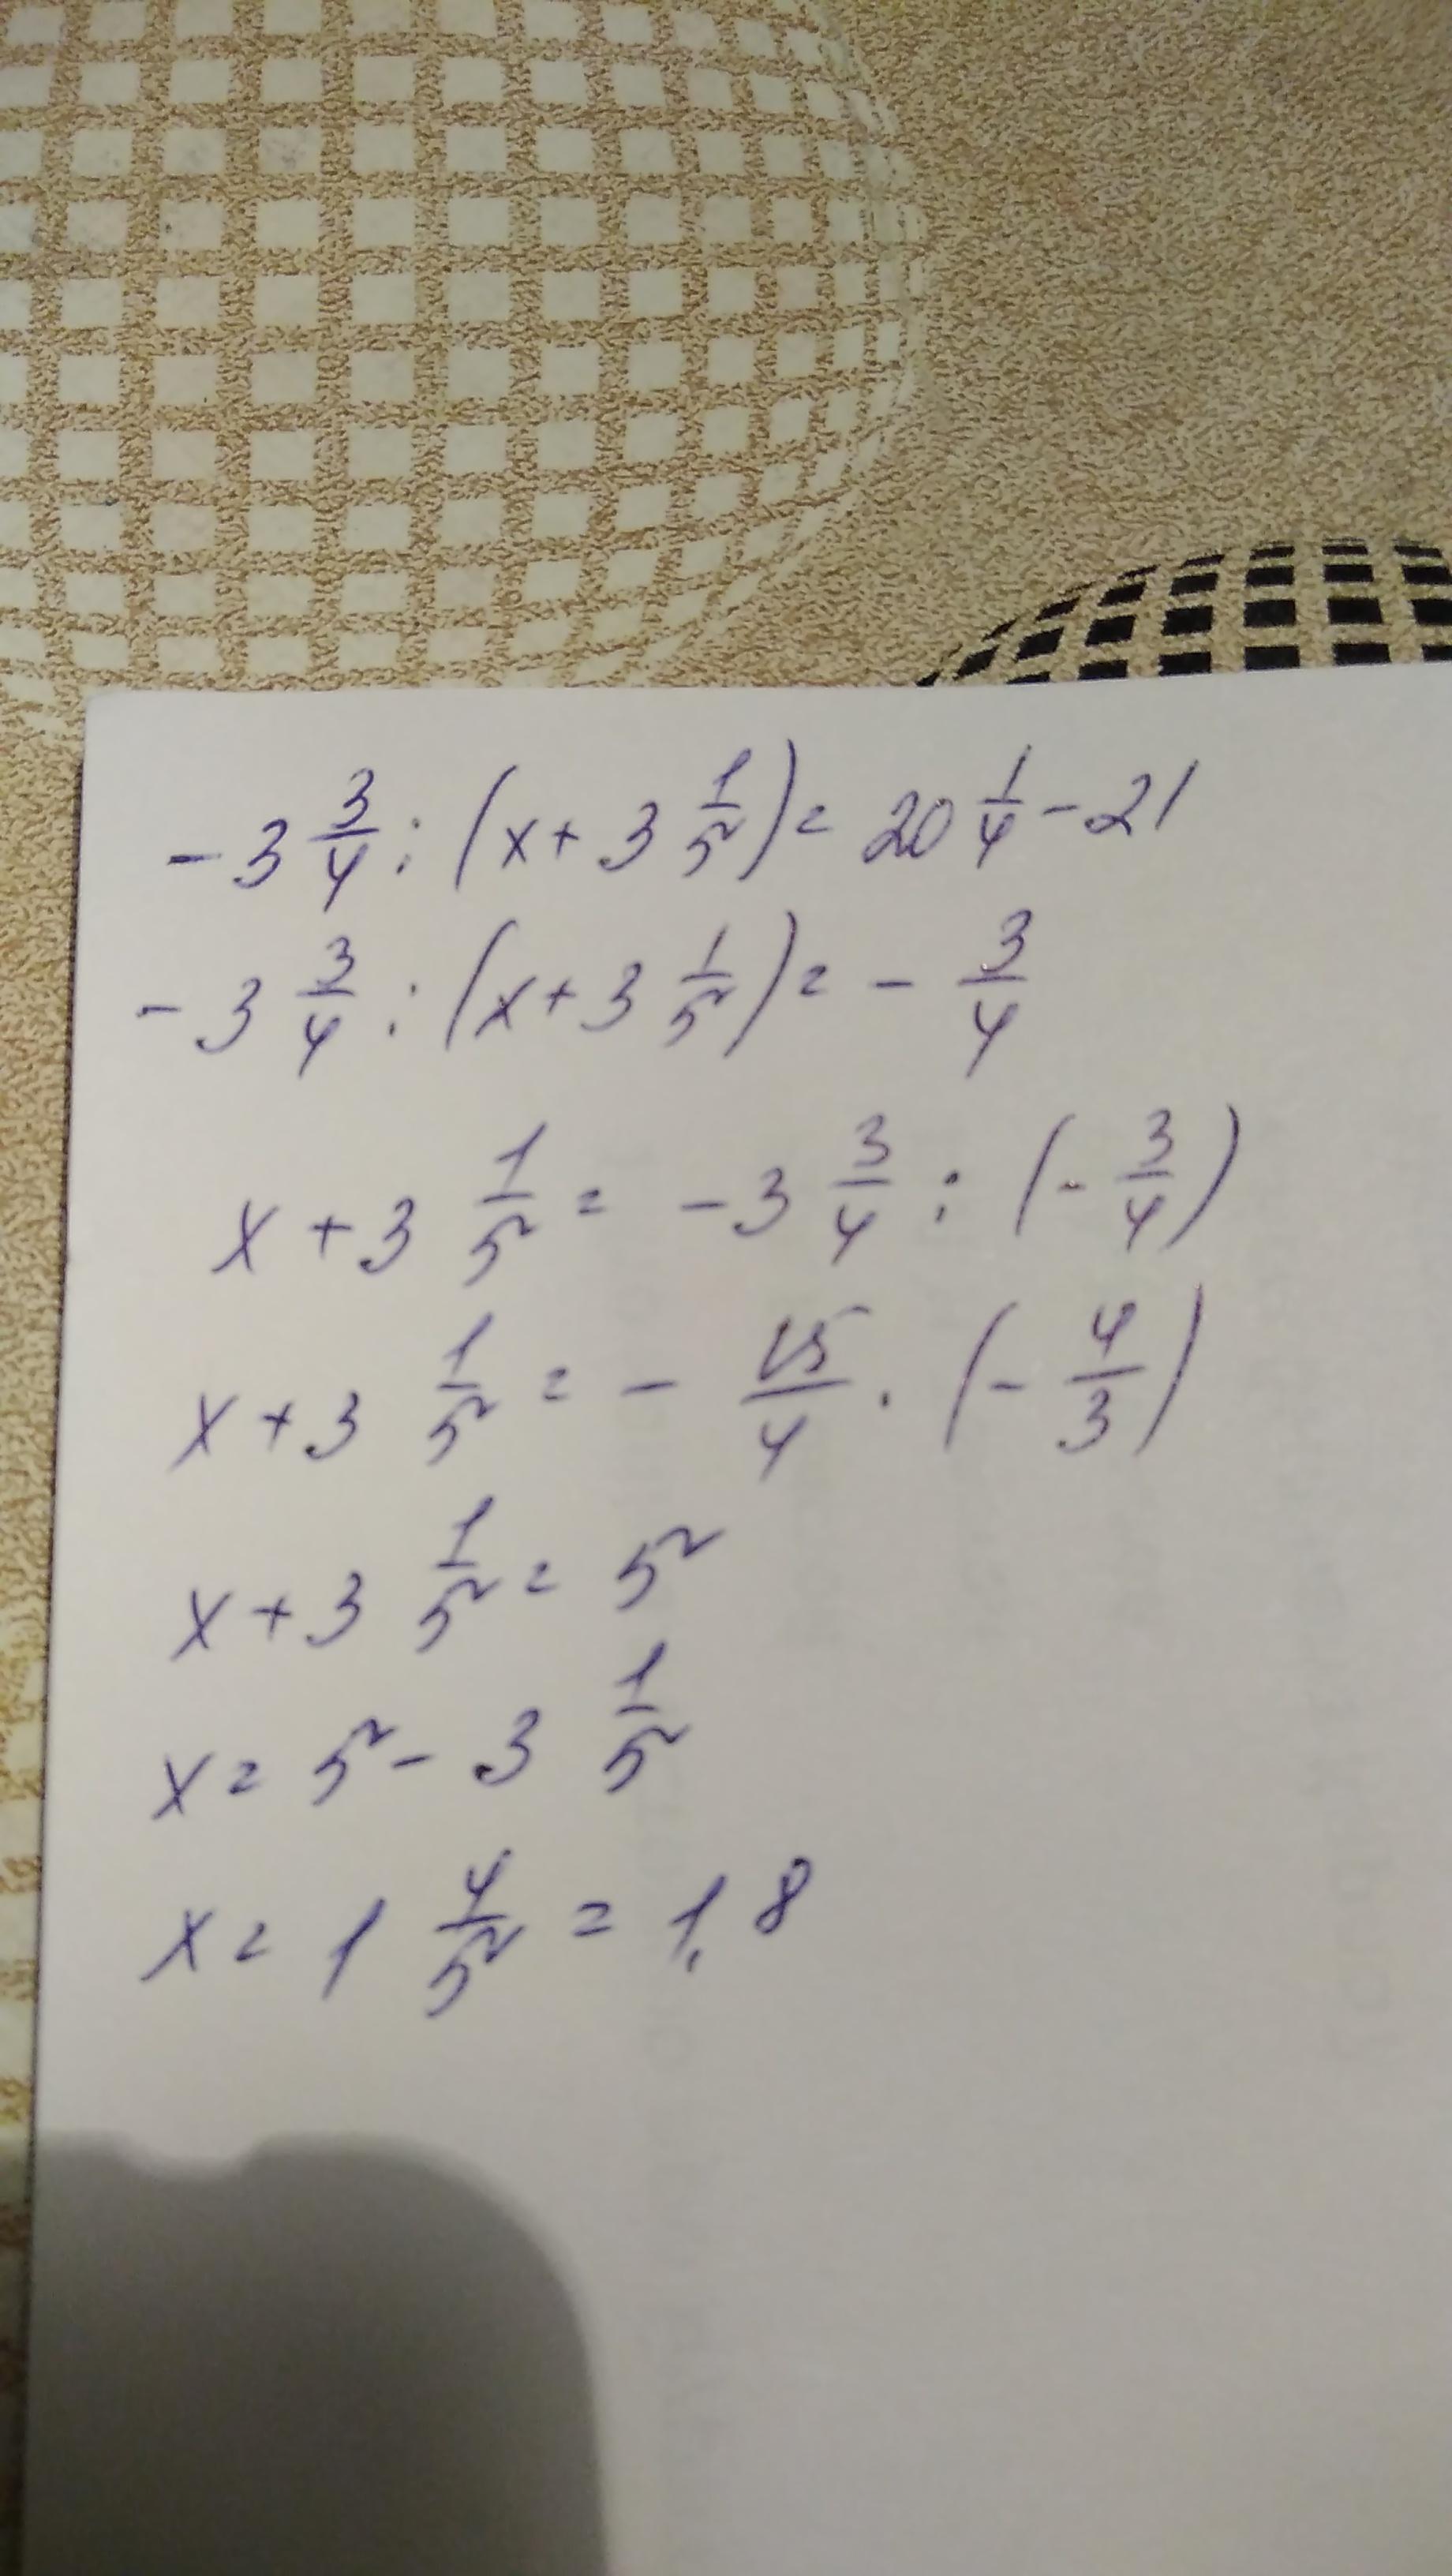 -3 3/4 : (x + 3 1/5) = 20 1/4 - 21
-3 3/4 : (x + 3 1/5) = - 3/4
x + 3 1/5 = -3 3/4 : (- 3/4)
x + 3 1/5 = - 15/4 · (- 4/3)
x + 3 1/5 = 5
x = 5 - 3 1/5
x = 1 4/5 = 1,8